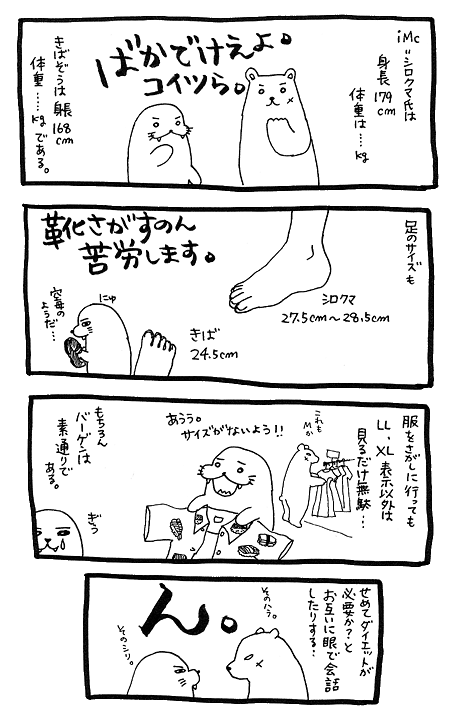 iMc
=シロクマ氏は
身長
179
cm
体重は……kg
ばかでけえよ。
コイツら。
きばぞうは身長
168
cm
体重……kgである。
足のサイズも
シロクマ
27.5cm〜28.5cm
靴さがすのん
苦労します。
きば
24.5cm
にゅ
空母の
ようだ…
服をさがしに行っても
LL、XL表示以外は
見るだけ無駄…
これも
Mか
あうう。
サイズがないよう!!
もちろん
バーゲンは
素通りで
ある。
ぎっ
せめてダイエットが
必要か?と
お互いに眼で会話
したりする…
そのハラ。
ん。
そのシリ。